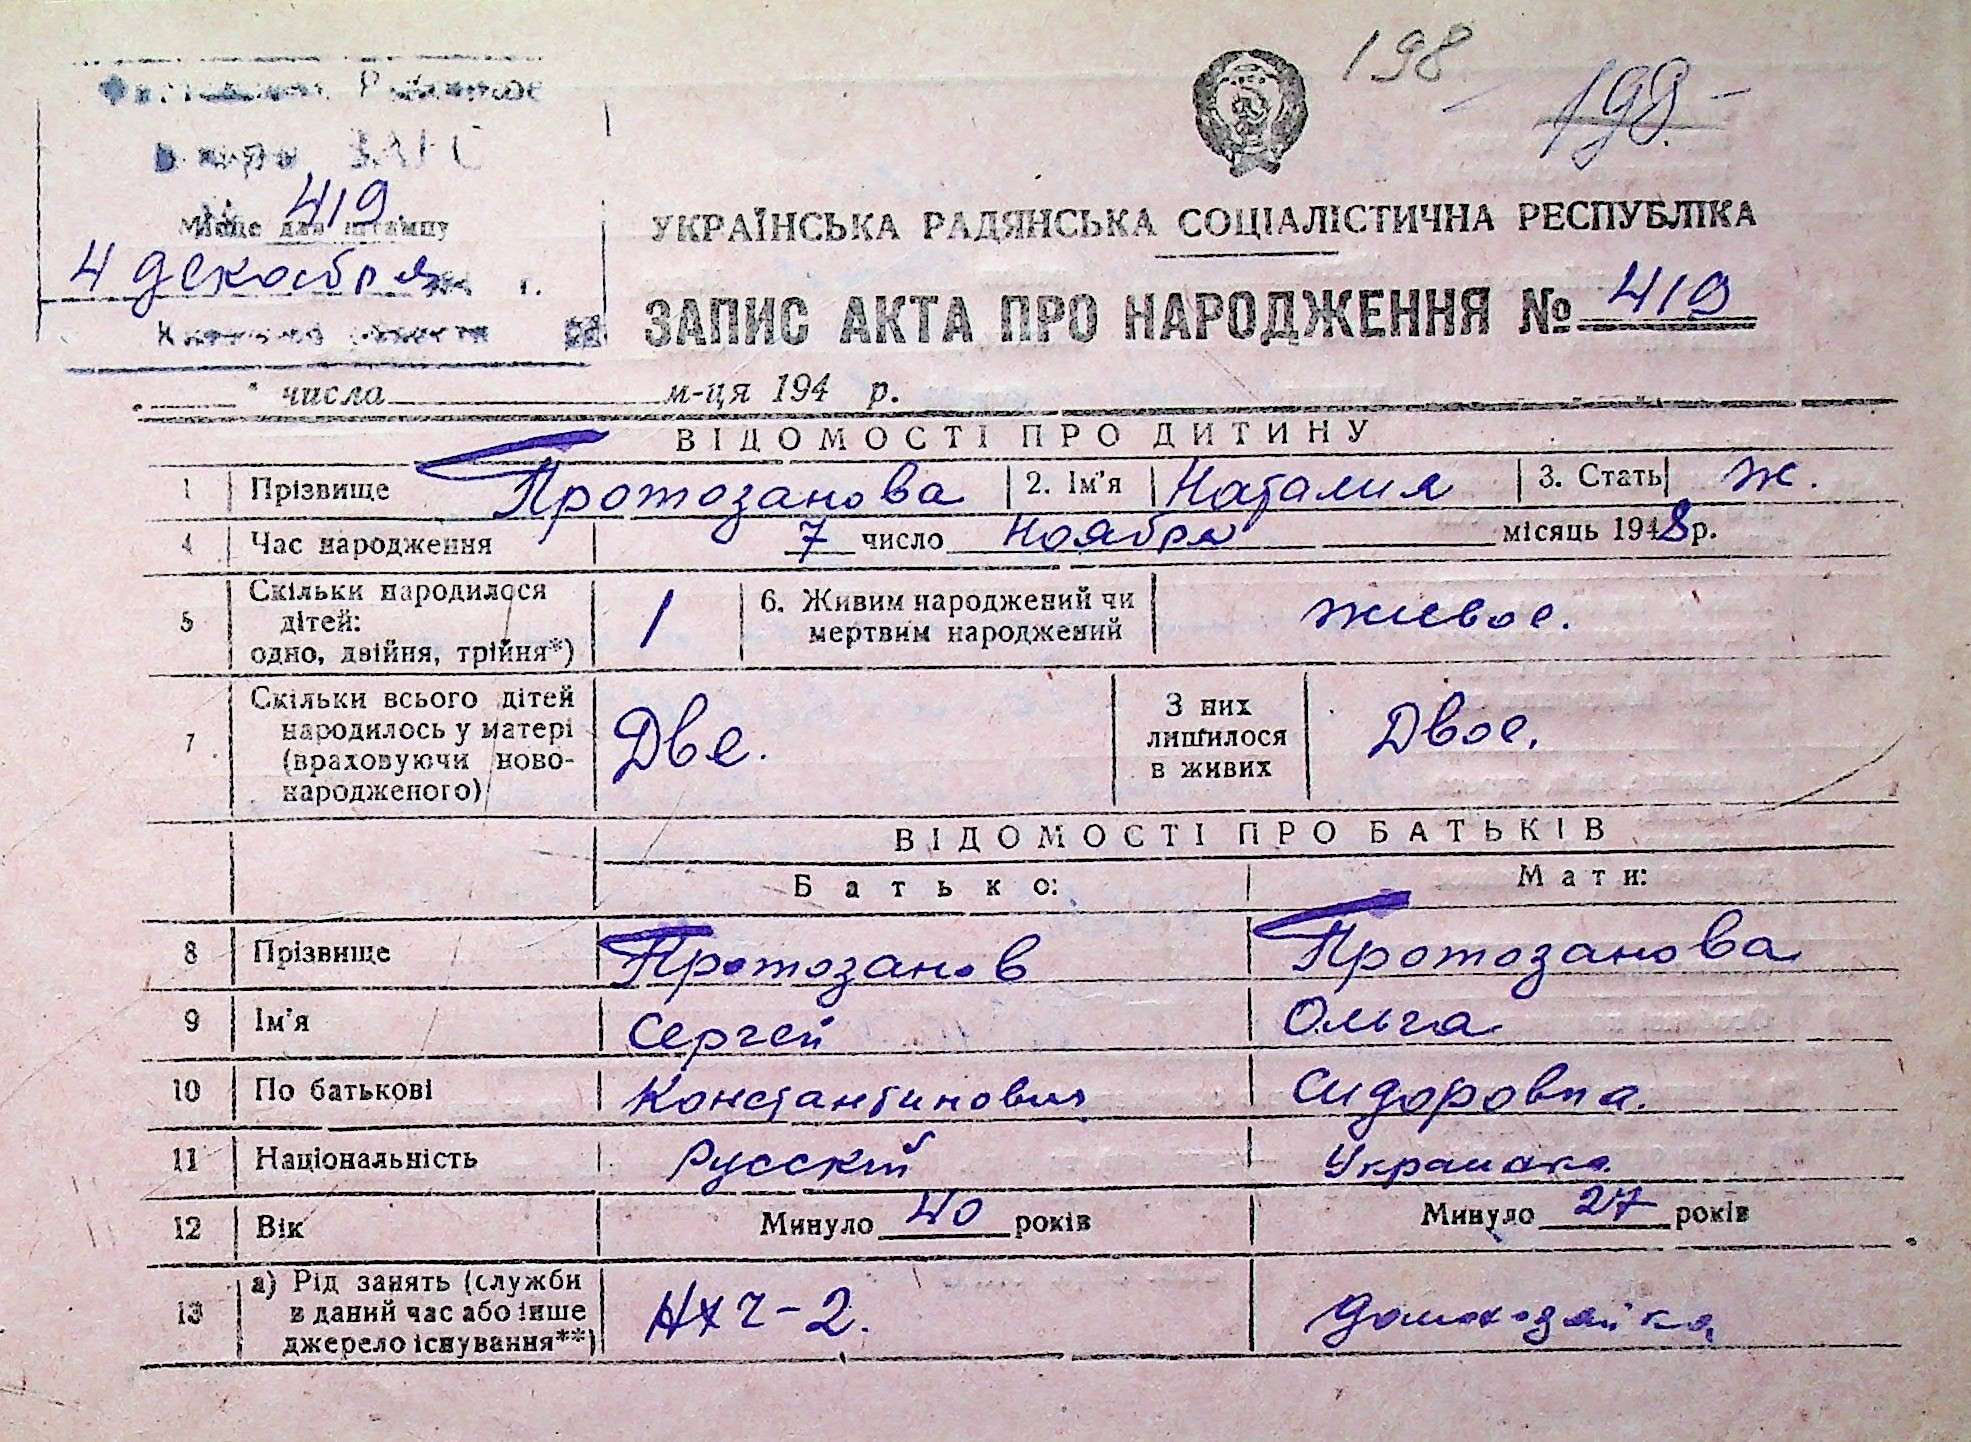 198
198.
ЗАГС
419
Місце для штампу
4 декабря г.
УКРАЇНСЬКА РАДЯНСЬКА СОЦІАЛІСТИЧНА РЕСПУБЛІКА
ЗАПИС АКТА ПРО НАРОДЖЕННЯ № 419
" числа м-ця 194 р.
ВІДОМОСТІ ПРО ДИТИНУ
1 Прізвище Протозанова 2. Ім'я Наталия 3. Стать ж.
4 Час народження 7 число Ноября місяць 1948 р.
5 Скільки народилося дітей: одно, двійня, трійня*) 1 6. Живим народжений чи мертвим народжений живое.
7 Скільки всього дітей народилось у матері (враховуючи ново-народженого) Две. З них лишилося в живих Двое.
ВІДОМОСТІ ПРО БАТЬКІВ
Батько: Мати:
8 Прізвище Протозанов Протозанова
9 Ім'я Сергей Ольга
10 По батькові Константинович Сидоровна.
11 Національність Русский Украинка
12 Вік Минуло 40 років Минуло 27 років
13 а) Рід занять (служби в даний час або інше джерело існування**) НХЧ-2. домохозяйка